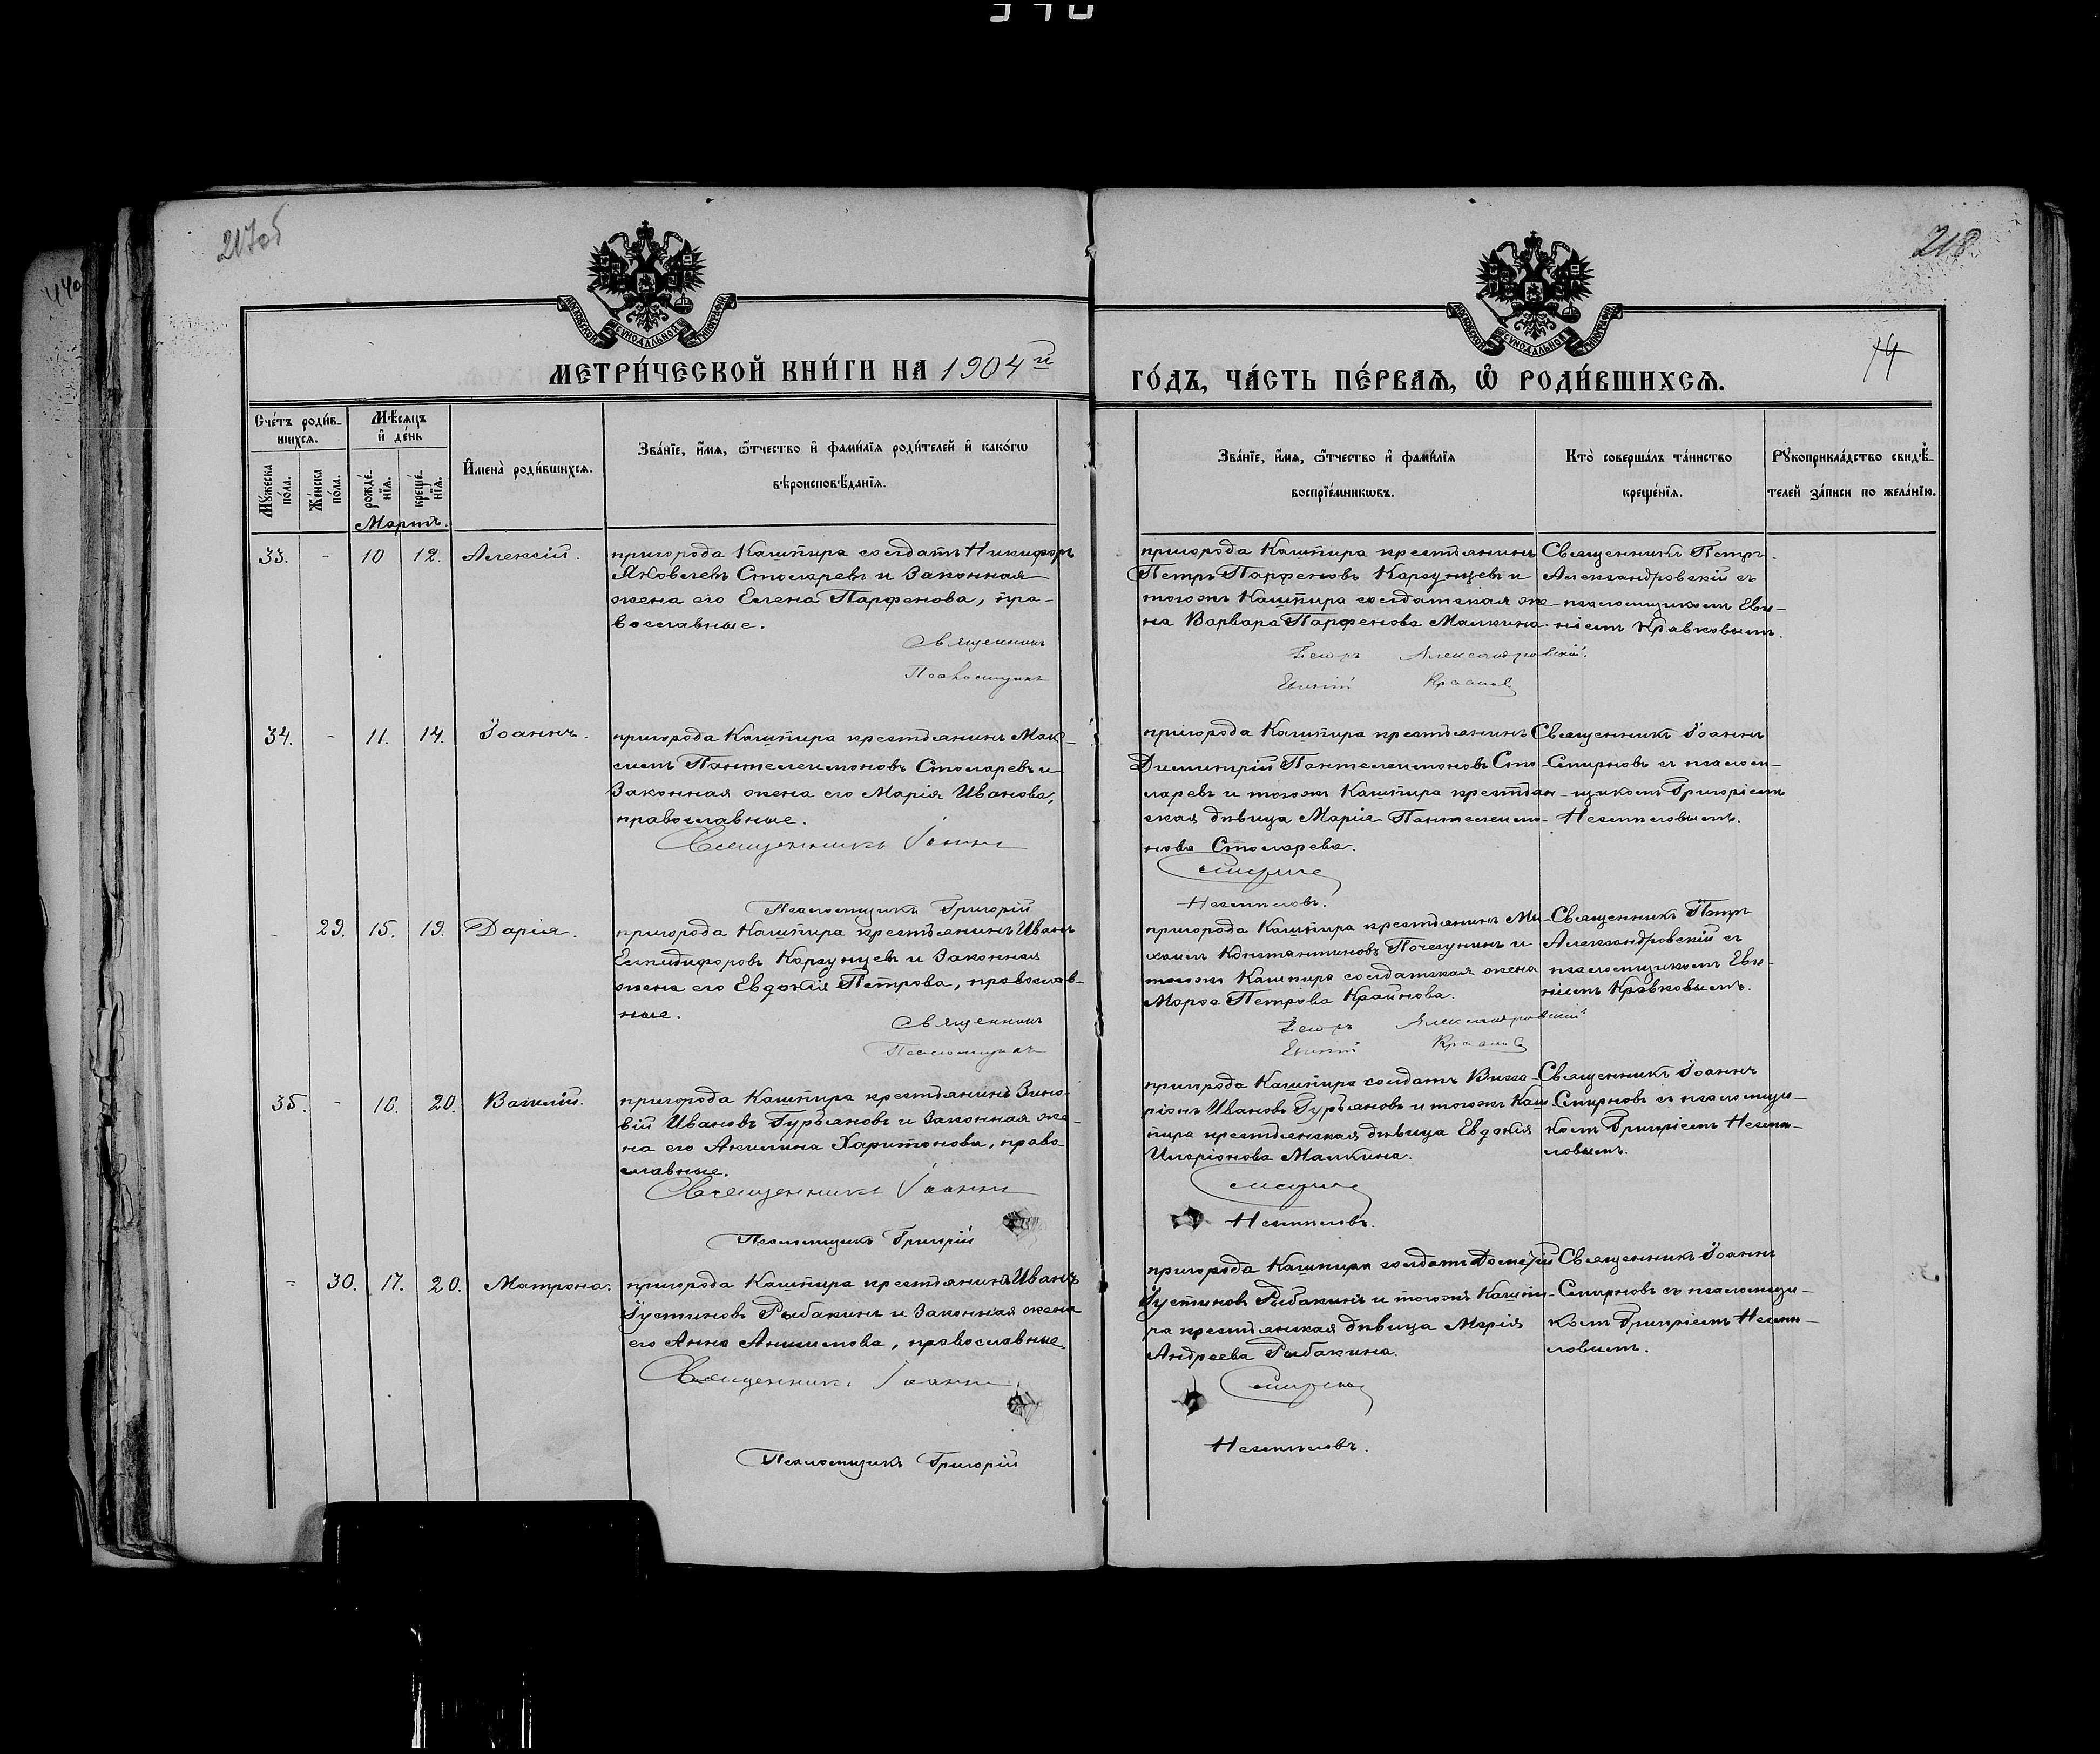 217об
218
74
МЕТРИ́ЧЕСКОЙ КНИ́ГИ НА 1904й
ГО́ДЪ, ЧА́СТЬ ПЕ́РВАЯ, Ѡ РОДИ́ВШИХСЯ.
МОСКОВСКОЙ СѴНОДАЛЬНОЙ ТИПОГРАФІИ
МОСКОВСКОЙ СѴНОДАЛЬНОЙ ТИПОГРАФІИ
Сче́тъ роди́в-
шихся.
Мꙋжеска по́ла.
Же́нска по́ла.
Мѣ́сяцъ
и҆ де́нь
рожде́-
нїя.
креще́-
нїя.
И҆мена̀ роди́вшихся.
Зва́нїе, и҆́мя, ѻ҆́тчество и҆ фами́лїя роди́телей и҆ како́гѡ
вѣроисповѣ́данїя.
Зва́нїе, и҆́мя, ѻ҆́тчество и҆ фами́лїя
воспрїе́мникѡвъ.
Кто̀ соверша́лъ та́инство
креще́нїя.
Рꙋкоприкла́дство свидѣ́-
телей за́писи по жела́нїю.
Мартъ.
33. - 10 12. Алексій.
пригорода Кашпира солдатъ Никифоръ
Яковлевъ Столяревъ и законная
жена его Елена Парфенова, пра-
вославные.
Священникъ
Псаломщикъ
пригорода Кашпира крестьянинъ
Петръ Парфеновъ Карзунцевъ и
тогожъ Кашпира солдатская же-
на Варвара Парфенова Малкина.
Петръ Александровскій.
Священникъ Петръ
Александровскій съ
псаломщикомъ Евѳи-
ніемъ Кравковымъ.
34. - 11. 14. Іоаннъ.
пригорода Кашпира крестьянинъ Мак-
симъ Пантелеимоновъ Столяревъ и
законная жена его Марія Иванова,
православные.
Священникъ Іоаннъ
Псаломщикъ Григорій
пригорода Кашпира крестьянинъ
Димитрій Пантелеимоновъ Сто-
ляревъ и тогожъ Кашпира крестьян-
ская дѣвица Марія Пантелеимо-
нова Столярева.
Смирновъ
Священникъ Іоаннъ
Смирновъ съ псаломщ-
щикомъ Григоріемъ
29. 15. 19. Дарія.
пригорода Кашпира крестьянинъ Иванъ
Елпидифоровъ Карзунцевъ и законная
жена его Евдокія Петрова, православ-
ные.
Священникъ
Псаломщикъ
пригорода Кашпира крестьянинъ Ми-
хаилъ Константиновъ Почезунинъ и
тогожъ Кашпира солдатская жена
Марѳа Петрова Крайнова.
Петръ Александровскій
Священникъ Петръ
Александровскій съ
псаломщикомъ Евѳи-
ніемъ Кравковымъ.
35. - 16. 20. Василій.
пригорода Кашпира крестьянинъ Зино-
вій Ивановъ Гурьяновъ и законная же-
на его Акилина Харитонова, право-
славные.
Священникъ Іоаннъ
Псаломщикъ Григорій
пригорода Кашпира солдатъ Висса-
ріонъ Ивановъ Гурьяновъ и тогожъ Каш-
пира крестьянская дѣвица Евдокія
Иларіонова Малкина.
Смирновъ
Священникъ Іоаннъ
Смирновъ съ псаломщи-
комъ Григоріемъ
- 30. 17. 20. Матрона.
пригорода Кашпира крестьянинъ Иванъ
Іустиновъ Рыбакинъ и законная жена
его Анна Анисимова, православные
Священникъ Іоаннъ
Псаломщикъ Григорій
пригорода Кашпира солдатъ Дометій
Іустиновъ Рыбакинъ и тогожъ Кашпи-
ра крестьянская дѣвица Марія
Андреева Рыбакина.
Смирновъ
Священникъ Іоаннъ
Смирновъ съ псаломщи-
комъ Григоріемъ